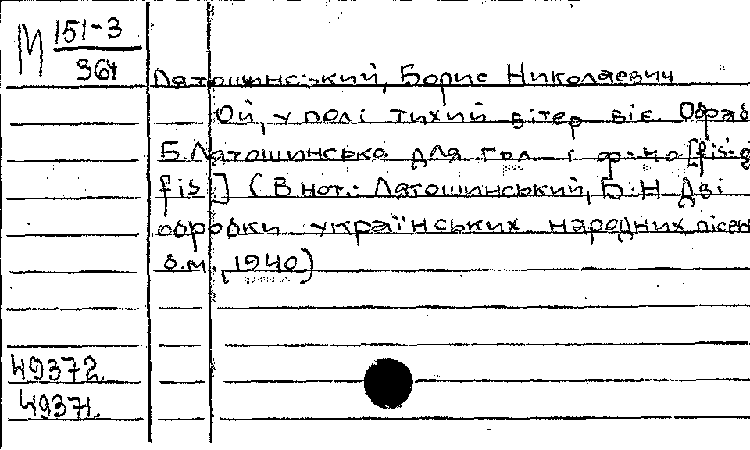 М 151-3
361
Лятошинський, Борис Николаевич
Ой, у полі тихий вітер віє. Обраб
Б.Лятошинсько для гол і ф-но [fis-g
fis] (В нот.: Лятошинський, Б.Н Дві
обробки українських народних пісен
б.м., 1940)
49372
49371